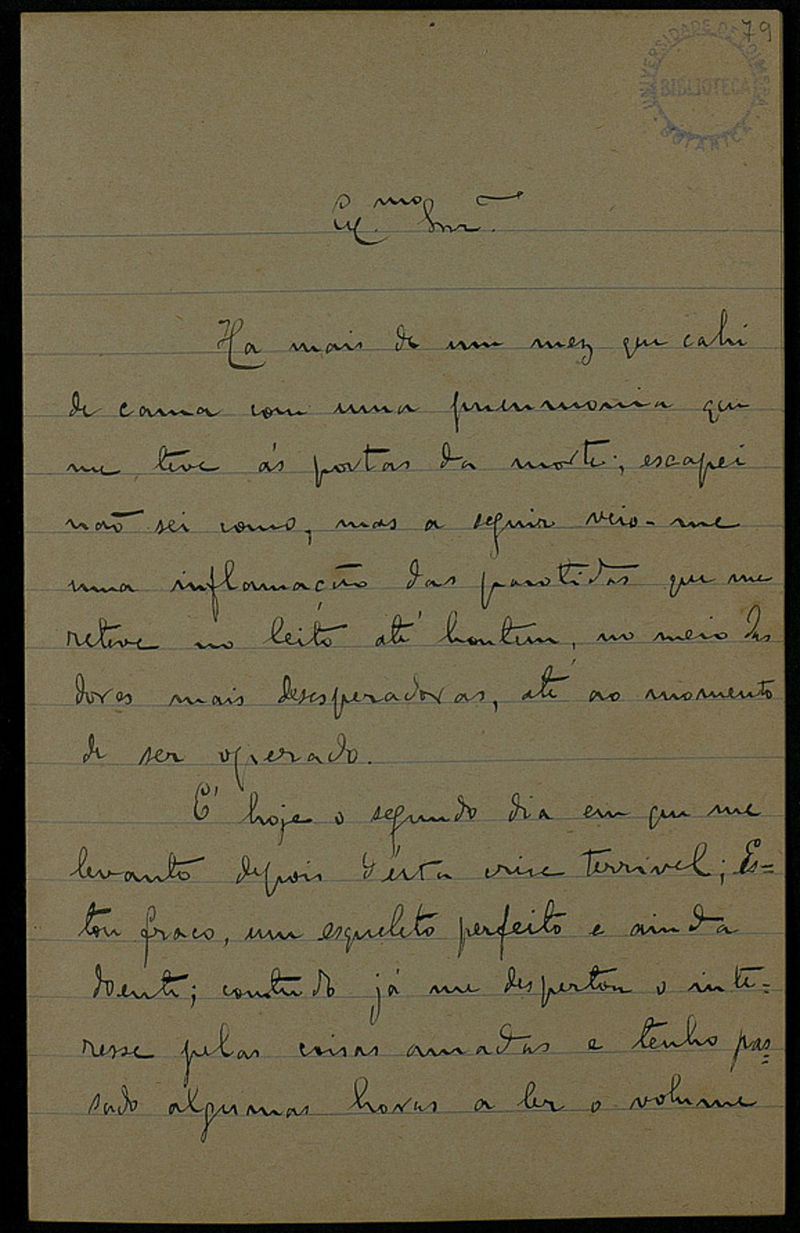 79
UNIVERSIDADE DE COIMBRA
BIBLIOTECA
BOTANICA
Ex.mo Snr.
Ha mais de um mez que cahi
de cama com uma pneumonia que
me teve ás portas da morte; escapei
não sei como, mas a seguir veio-me
uma inflamação das parotidas que me
reteve no leito até hontem, no meio das
dores mais desesperadoras, até ao momento
de ser operado.
E' hoje o segundo dia em que me
levanto depois d'ésta crise terrivel; Es-
tou fraco, um esqueleto perfeito e ainda
doente; contudo já me despertou o inte-
resse pelas coisas amadas e tenho pas-
sado algumas horas a ler o volume